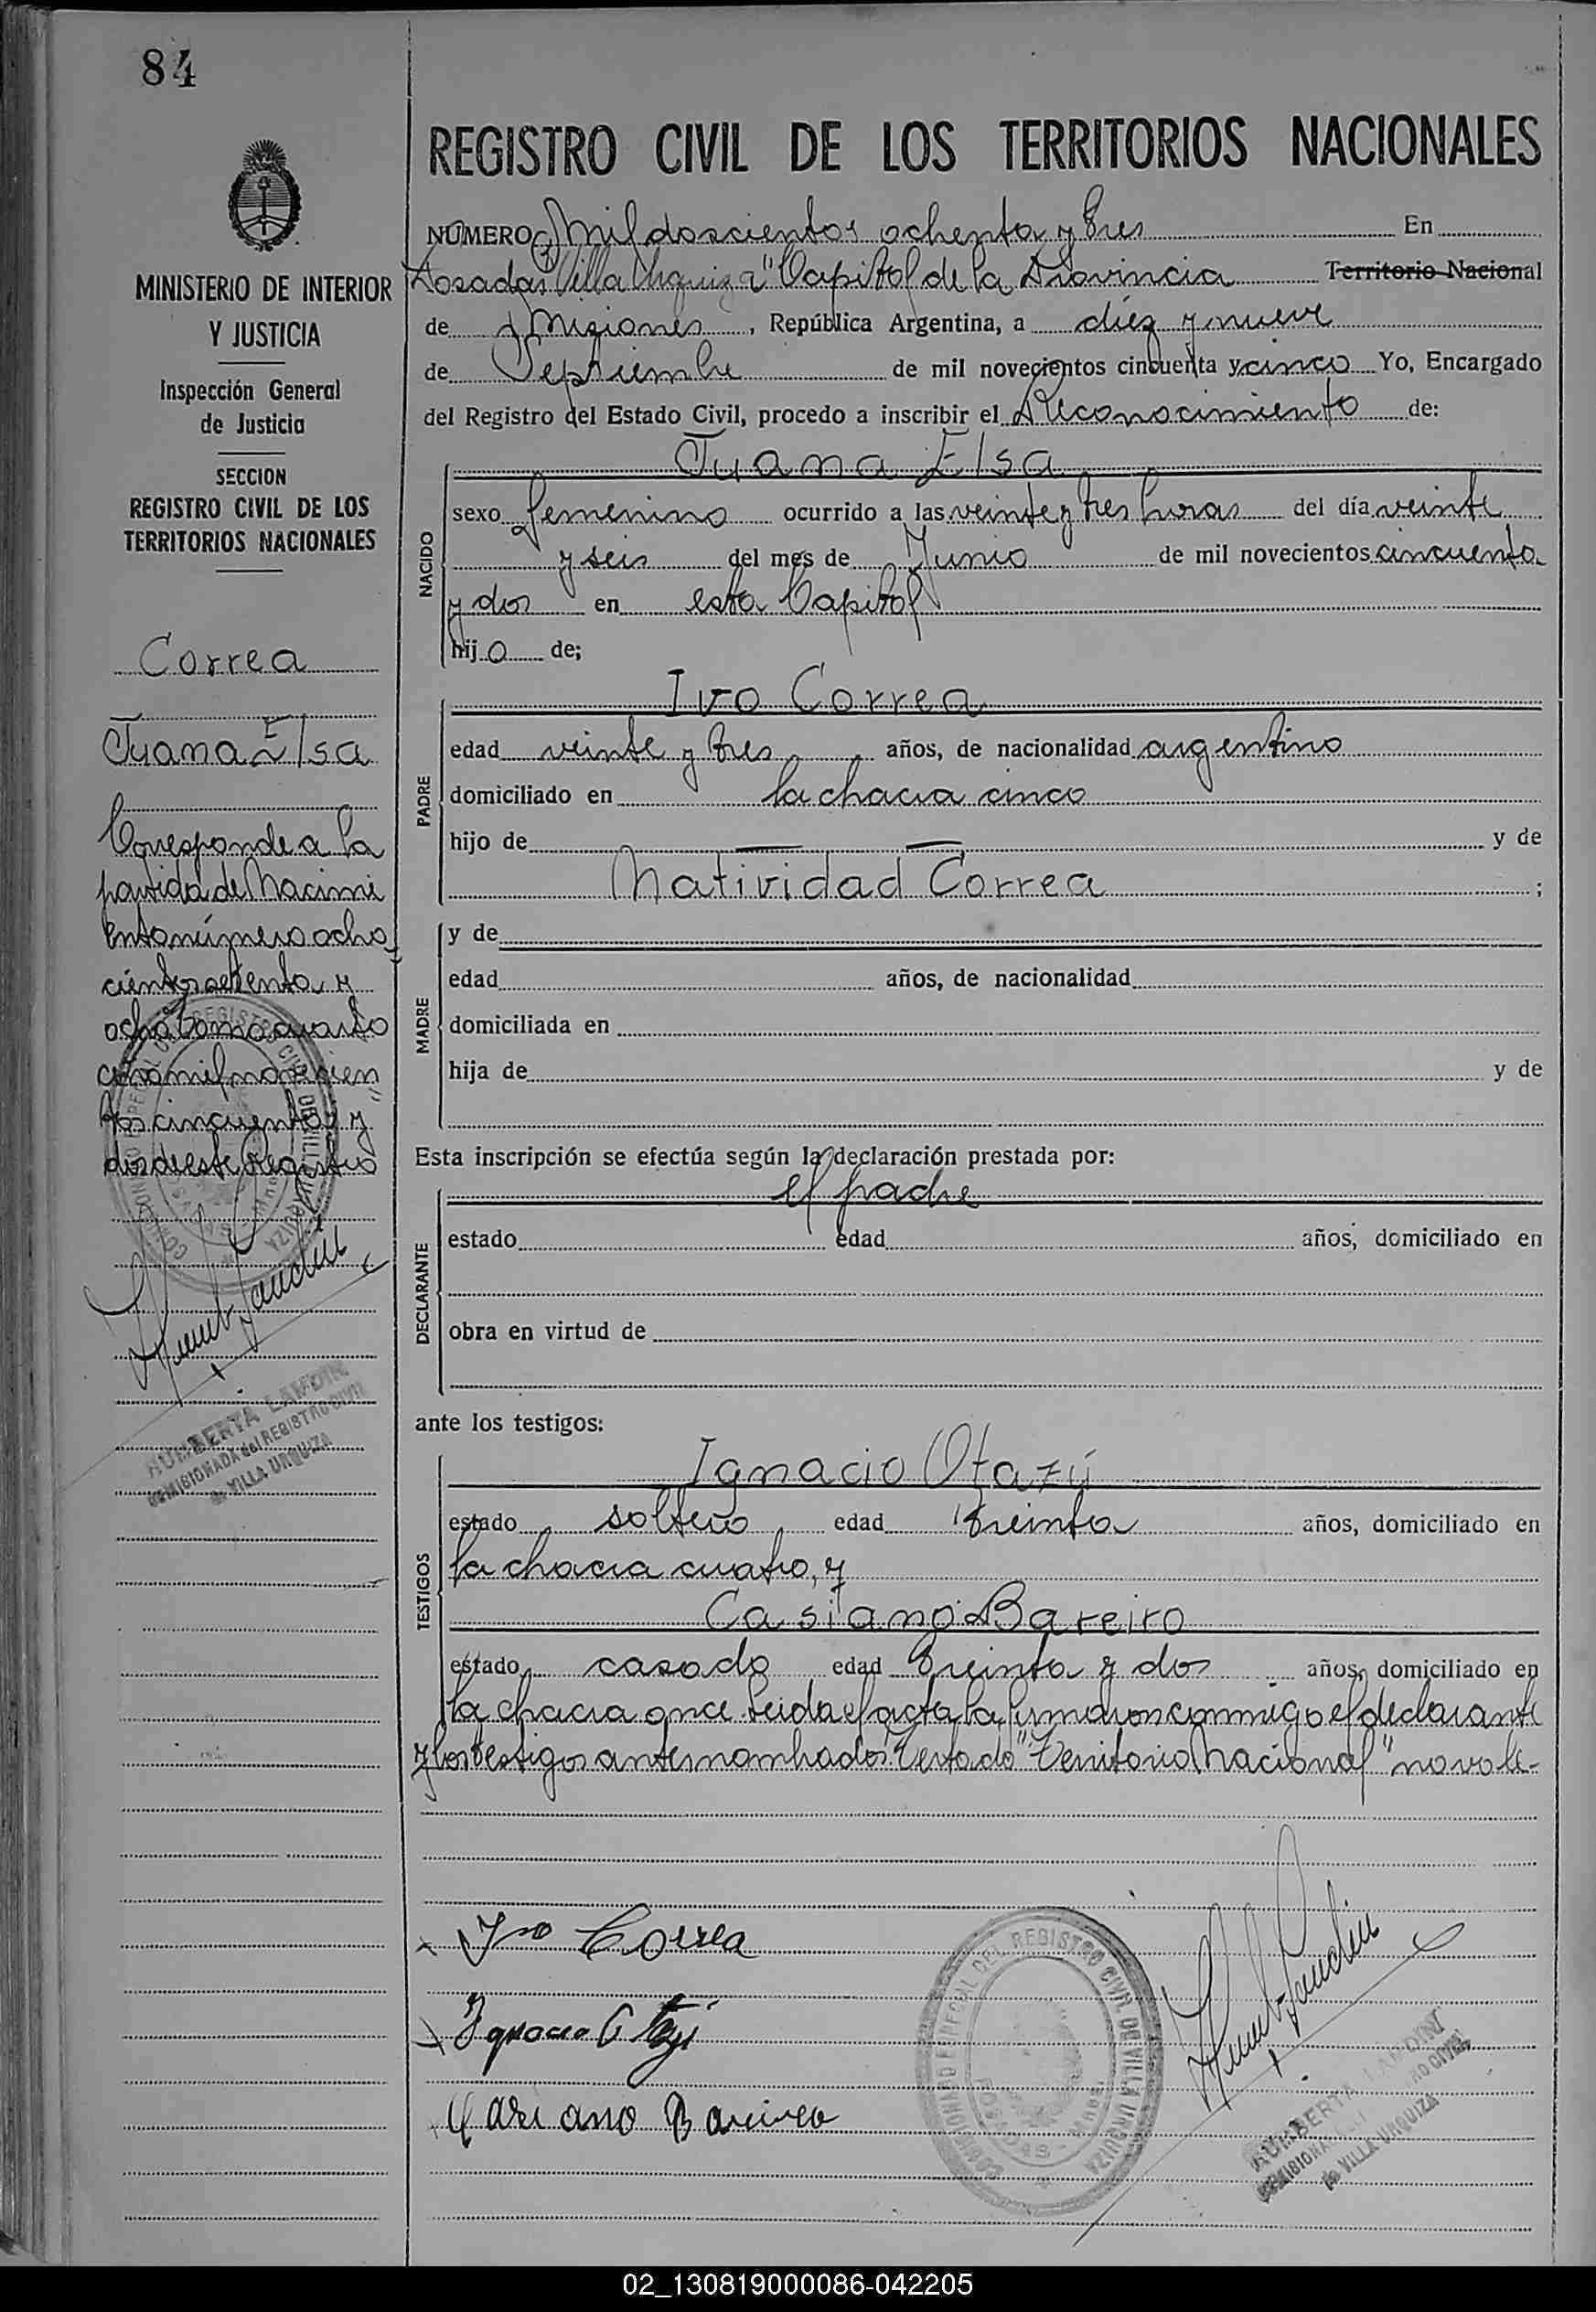 84
MINISTERIO DE INTERIOR
Y JUSTICIA
Inspección General
de Justicia
SECCION
REGISTRO CIVIL DE LOS
TERRITORIOS NACIONALES
Correa
Juana Elsa
Corresponde a la
partida de Nacimi
ento número ocho
cientos setenta y
ocho tomo cuarto
año mil novecien
tos cincuenta y
dos de este Registro
HUMBERTA LANDINI
COMISIONADA del REGISTRO CIVIL
de VILLA URQUIZA
REGISTRO CIVIL DE LOS TERRITORIOS NACIONALES
NUMERO Mil doscientos ochenta y tres En
Posadas "Villa Urquiza" Capital de la Provincia Territorio Nacional
de Misiones, República Argentina, a diez y nueve
de Septiembre de mil novecientos cincuenta y cinco Yo, Encargado
del Registro del Estado Civil, procedo a inscribir el Reconocimiento de:
NACIDO
Juana Elsa
sexo femenino ocurrido a las veinte y tres horas del día veinte
y seis del mes de Junio de mil novecientos cincuenta
y dos en esta Capital
hija de;
PADRE
Ivo Correa
edad veinte y tres años, de nacionalidad argentino
domiciliado en la chacra cinco
hijo de y de
Natividad Correa ;
MADRE
y de
edad años, de nacionalidad
domiciliada en
hija de y de
Esta inscripción se efectúa según la declaración prestada por:
DECLARANTE
el padre
estado edad años, domiciliado en
obra en virtud de
ante los testigos:
TESTIGOS
Ignacio Otazú
estado soltero edad treinta años, domiciliado en
la chacra cuatro, y
Casiano Bareiro
estado casado edad treinta y dos años, domiciliado en
la chacra once. Leida el acta la firmaron conmigo el declarante
y los testigos antes nombrados. Testado "Territorio Nacional" no vale-
Ivo Correa
Ignacio Otazú
Casiano Bareiro
COMISIONADO ESPECIAL DEL REGISTRO CIVIL DE VILLA URQUIZA
POSADAS - Mnes.
HUMBERTA LANDINI
COMISIONADA del REGISTRO CIVIL
de VILLA URQUIZA
02_130819000086-042205